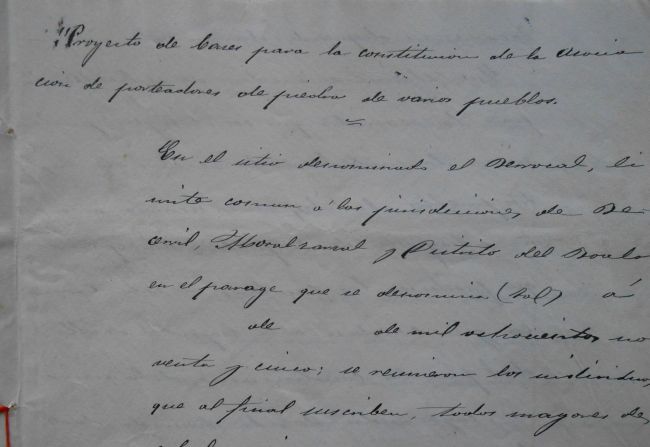 "Proyecto de bases para la constitucion de la Asocia
cion de porteadores de piedra de varios pueblos.
En el sitio denominado el Berrocal, li
mite comun á las jurisdicciones de Be
cerril, Moralzarzal y Distrito del Boalo
en el parage que se denomina (tal) á
de de mil ochocientos no
venta y cinco; se reunieron los individuos,
que al final suscriben, todos mayores de